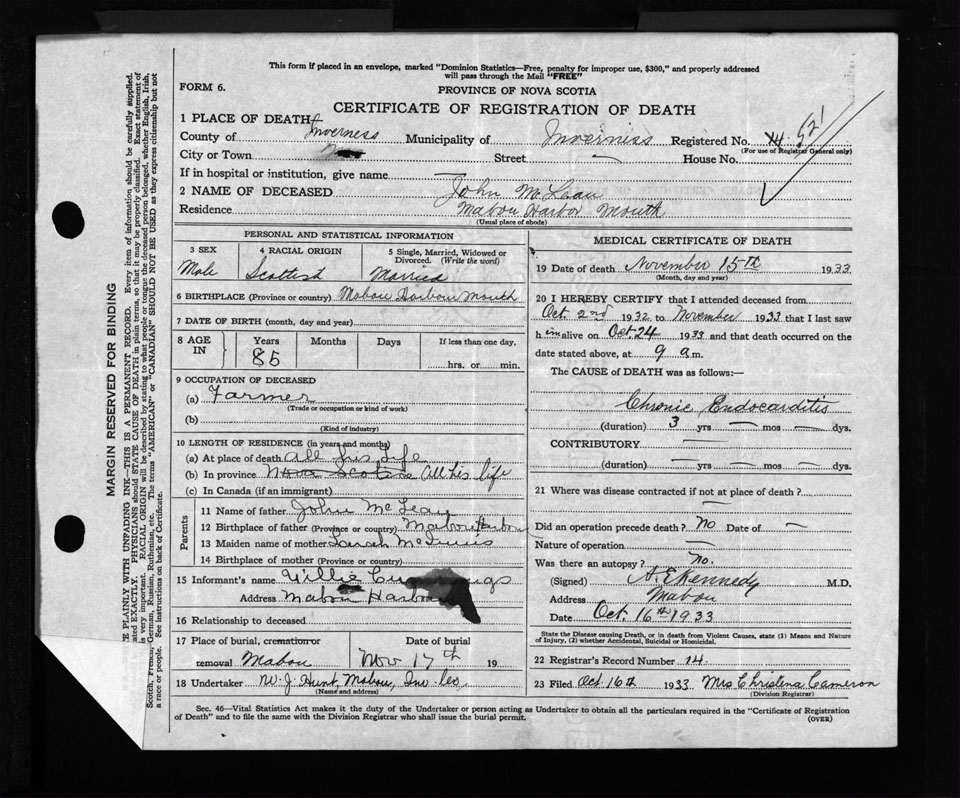 This form if placed in an envelope, marked "Dominion Statistics—Free, penalty for improper use, $300," and properly addressed
will pass through the Mail "FREE"
FORM 6.
PROVINCE OF NOVA SCOTIA
CERTIFICATE OF REGISTRATION OF DEATH
1 PLACE OF DEATH
County of Inverness Municipality of Inverness Registered No. 14. 521
(For use of Registrar General only)
City or Town Street — House No.
If in hospital or institution, give name —
2 NAME OF DECEASED John McLean
Residence Mabou Harbor Mouth
(Usual place of abode)
PERSONAL AND STATISTICAL INFORMATION
3 SEX Male
4 RACIAL ORIGIN Scottish
5 Single, Married, Widowed or Divorced. (Write the word) Married
6 BIRTHPLACE (Province or country) Mabou Harbour Mouth
7 DATE OF BIRTH (month, day and year)
8 AGE IN Years 85 Months Days If less than one day, hrs. or min.
9 OCCUPATION OF DECEASED
(a) Farmer
(Trade or occupation or kind of work)
(b)
(Kind of industry)
10 LENGTH OF RESIDENCE (in years and months)
(a) At place of death All his life
(b) In province Nova Scotia All his life
(c) In Canada (if an immigrant)
Parents
11 Name of father John McLean
12 Birthplace of father (Province or country) Mabou Harbou
13 Maiden name of mother Sarah McInnis
14 Birthplace of mother (Province or country)
15 Informant's name Willie
Address Mabou
16 Relationship to deceased
17 Place of burial, cremation or removal Mabou
Date of burial Nov 17th 19
18 Undertaker W. J. Hunt, Mabou, Inv Co,
(Name and address)
MEDICAL CERTIFICATE OF DEATH
19 Date of death November 15th 1933
(Month, day and year)
20 I HEREBY CERTIFY that I attended deceased from
Oct. 2nd 1932 to November 1933 that I last saw
him alive on Oct 24 1933 and that death occurred on the
date stated above, at 9 a m.
The CAUSE of DEATH was as follows:
Chronic Endocarditis
(duration) 3 yrs — mos — dys.
CONTRIBUTORY —
(duration) — yrs — mos — dys.
21 Where was disease contracted if not at place of death?
—
Did an operation precede death? No Date of —
Nature of operation —
Was there an autopsy? No.
(Signed) A. E Kennedy M.D.
Address Mabou
Date Oct. 16th 1933
State the Disease causing Death, or in death from Violent Causes, state (1) Means and Nature
of Injury, (2) whether Accidental, Suicidal or Homicidal.
22 Registrar's Record Number 14.
23 Filed Oct 16th 1933 Mrs Christina Cameron
(Division Registrar)
Sec. 46—Vital Statistics Act makes it the duty of the Undertaker or person acting as Undertaker to obtain all the particulars required in the "Certificate of Registration
of Death" and to file the same with the Division Registrar who shall issue the burial permit.
(OVER)
MARGIN RESERVED FOR BINDING
PLAINLY WITH UNFADING INK—THIS IS A PERMANENT RECORD. Every item of information should be carefully supplied.
EXACTLY. PHYSICIANS should STATE CAUSE OF DEATH in plain terms, so that it may be properly classified. Exact statement of
is very important. RACIAL ORIGIN will be described by stating to what people or tongue the deceased person belonged, whether English, Irish,
Scotch, French, German, Russian, Ruthenian, etc. The terms "AMERICAN" or "CANADIAN" SHOULD NOT BE USED as they express citizenship but not
a race or people. See instructions on back of Certificate.